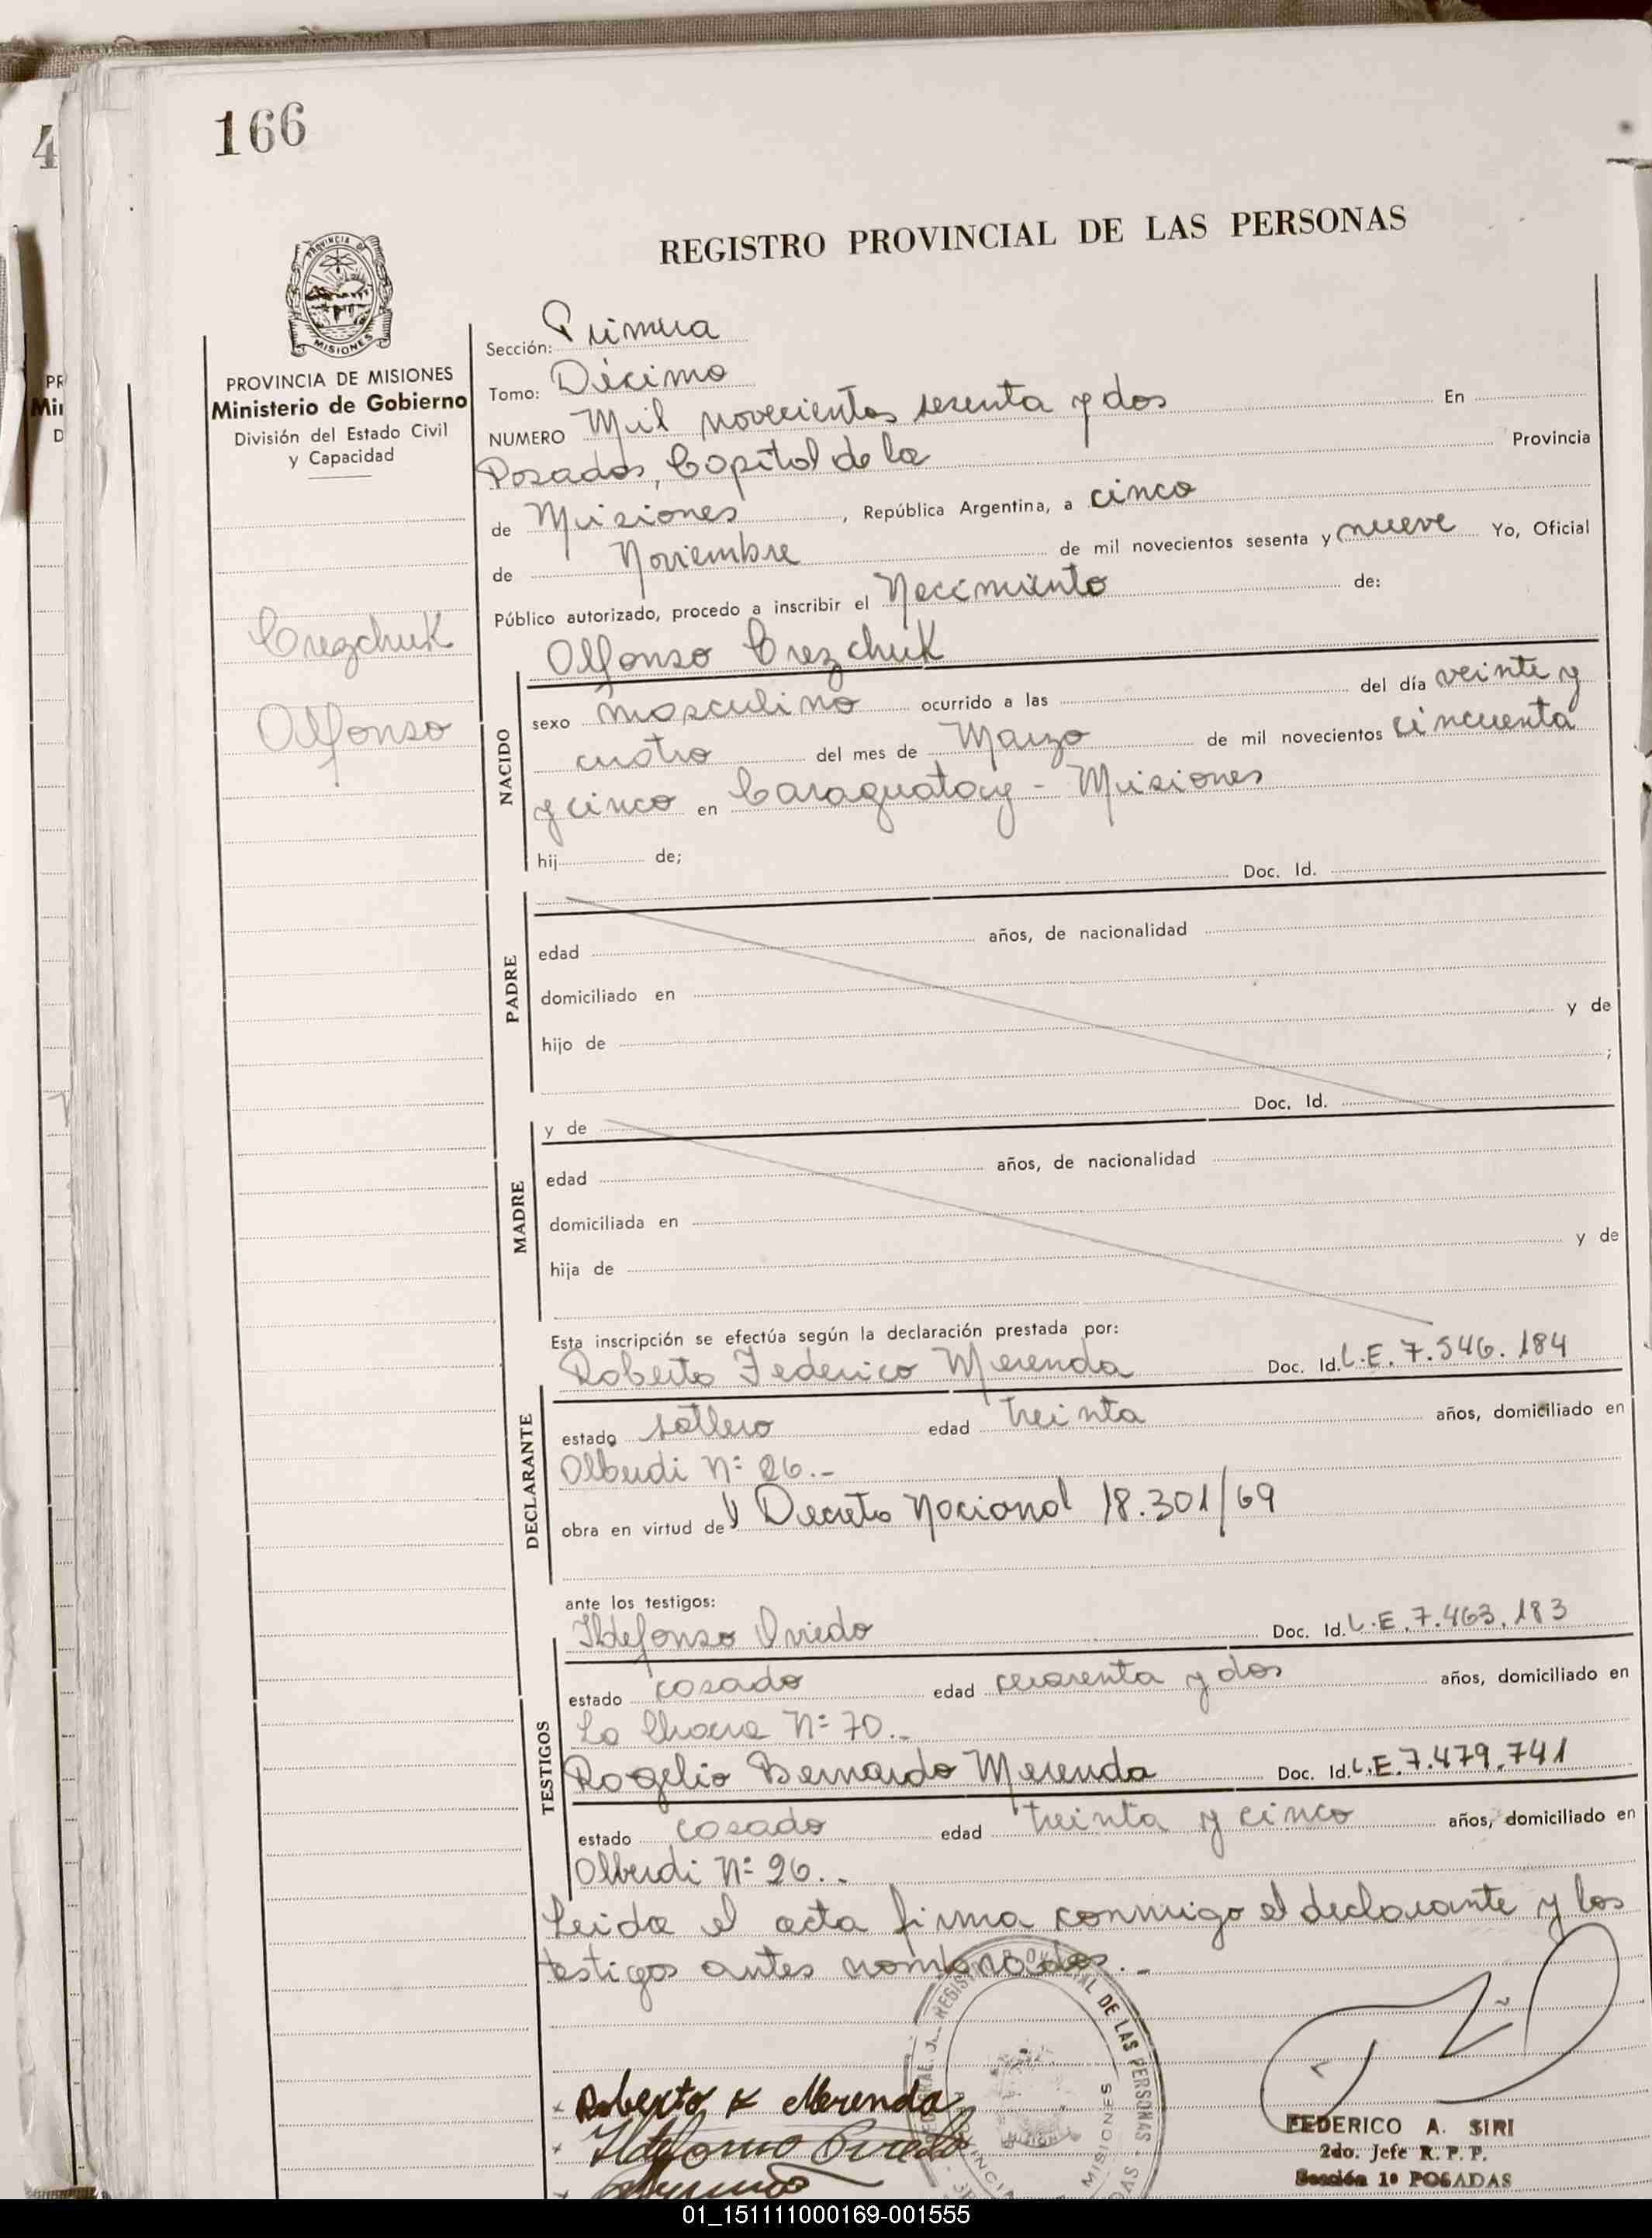 4
166
REGISTRO PROVINCIAL DE LAS PERSONAS
PROVINCIA DE
MISIONES
PROVINCIA DE MISIONES
Ministerio de Gobierno
División del Estado Civil
y Capacidad
Crezchuk
Alfonso
Sección: Primera
Tomo: Décimo
NUMERO Mil novecientos sesenta y dos En
Posadas, Capital de la Provincia
de Misiones, República Argentina, a cinco
de Noviembre de mil novecientos sesenta y nueve Yo, Oficial
Público autorizado, procedo a inscribir el Nacimiento de:
Alfonso Crezchuk
NACIDO
sexo masculino ocurrido a las del día veinte y
cuatro del mes de Marzo de mil novecientos cincuenta
y cinco en Caraguatay - Misiones
hij de;
Doc. Id.
PADRE
edad años, de nacionalidad
domiciliado en
hijo de y de
;
y de Doc. Id.
MADRE
edad años, de nacionalidad
domiciliada en
hija de y de
Esta inscripción se efectúa según la declaración prestada por:
Roberto Federico Merenda Doc. Id. L.E. 7.546.184
DECLARANTE
estado soltero edad treinta años, domiciliado en
Alberdi Nº 26.-
obra en virtud de Decreto Nacional 18.301/69
ante los testigos:
Ildefonso Oviedo Doc. Id. L.E. 7.463.183
TESTIGOS
estado casado edad cuarenta y dos años, domiciliado en
La Chacra Nº 70.-
Rogelio Bernardo Merenda Doc. Id. L.E. 7.479.741
estado casado edad treinta y cinco años, domiciliado en
Alberdi Nº 26.-
Leida el acta firma conmigo el declarante y los
testigos antes nombrados.-
DE LAS PERSONAS
MISIONES
Roberto F Merenda
Ildefonso Oviedo
FEDERICO A. SIRI
2do. Jefe R. P. P.
Sección 1º POSADAS
01_151111000169-001555